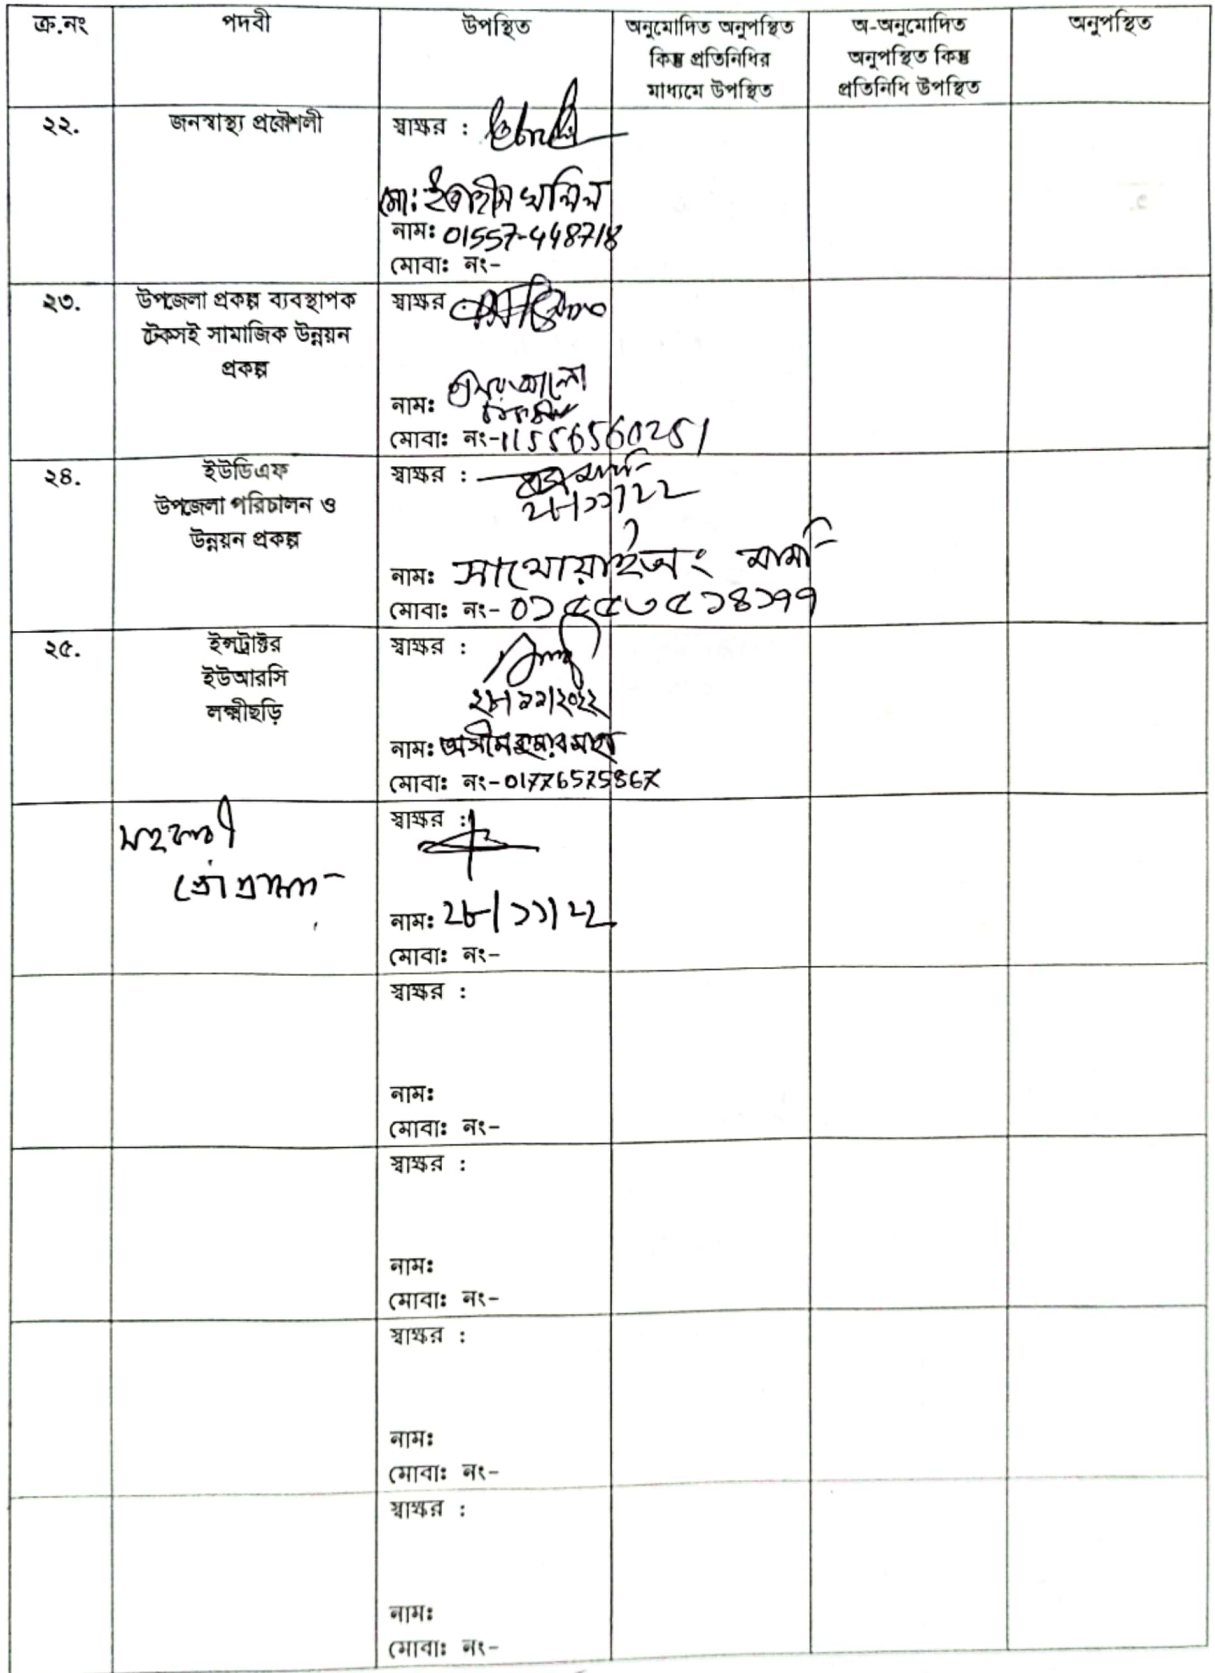 ক্র.নং পদবী উপস্থিত অনুমোদিত অনুপস্থিত কিন্তু প্রতিনিধির মাধ্যমে উপস্থিত অ-অনুমোদিত অনুপস্থিত কিন্তু প্রতিনিধি উপস্থিত অনুপস্থিত
২২. জনস্বাস্থ্য প্রকৌশলী স্বাক্ষর :
মো: ইব্রাহীম খলিল
নাম: 01557-448718
মোবা: নং-
২৩. উপজেলা প্রকল্প ব্যবস্থাপক স্বাক্ষর
টেকসই সামাজিক উন্নয়ন
প্রকল্প
নাম:
মোবা: নং-11556560251
২৪. ইউডিএফ স্বাক্ষর :
উপজেলা পরিচালন ও ২৮/১১/২২
উন্নয়ন প্রকল্প
নাম: সাথোয়াইঅং মার্মা
মোবা: নং- ০১৫৫৩৫১৪১৭৭
২৫. ইন্সট্রাক্টর স্বাক্ষর :
ইউআরসি
লক্ষ্মীছড়ি ২৮/১১/২০২২
নাম: অসীম কুমার সাহা
মোবা: নং-
স্বাক্ষর :
সহকারী
নাম: ২৮/১১/২২
মোবা: নং-
স্বাক্ষর :
নাম:
মোবা: নং-
স্বাক্ষর :
নাম:
মোবা: নং-
স্বাক্ষর :
নাম:
মোবা: নং-
স্বাক্ষর :
নাম:
মোবা: নং-